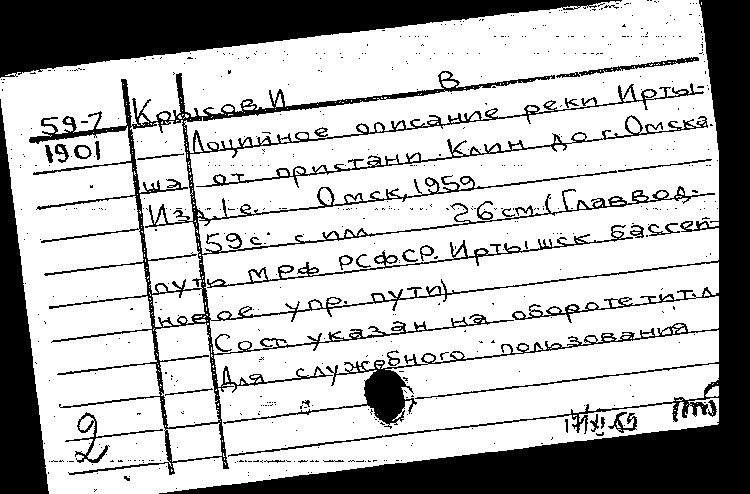 59-7 Крюков. И В
1901 Лоцийное описание реки Ирты-
ша от пристани Клин до г. Омска.
Изд. 1-е. Омск, 1959.
59 с. с илл. 26 см. (Главвод-
путь МРФ РСФСР. Иртышск. бассей-
новое упр. пути).
Сост. указан на обороте тит. л.
Для служебного пользования
2 17/XI-59